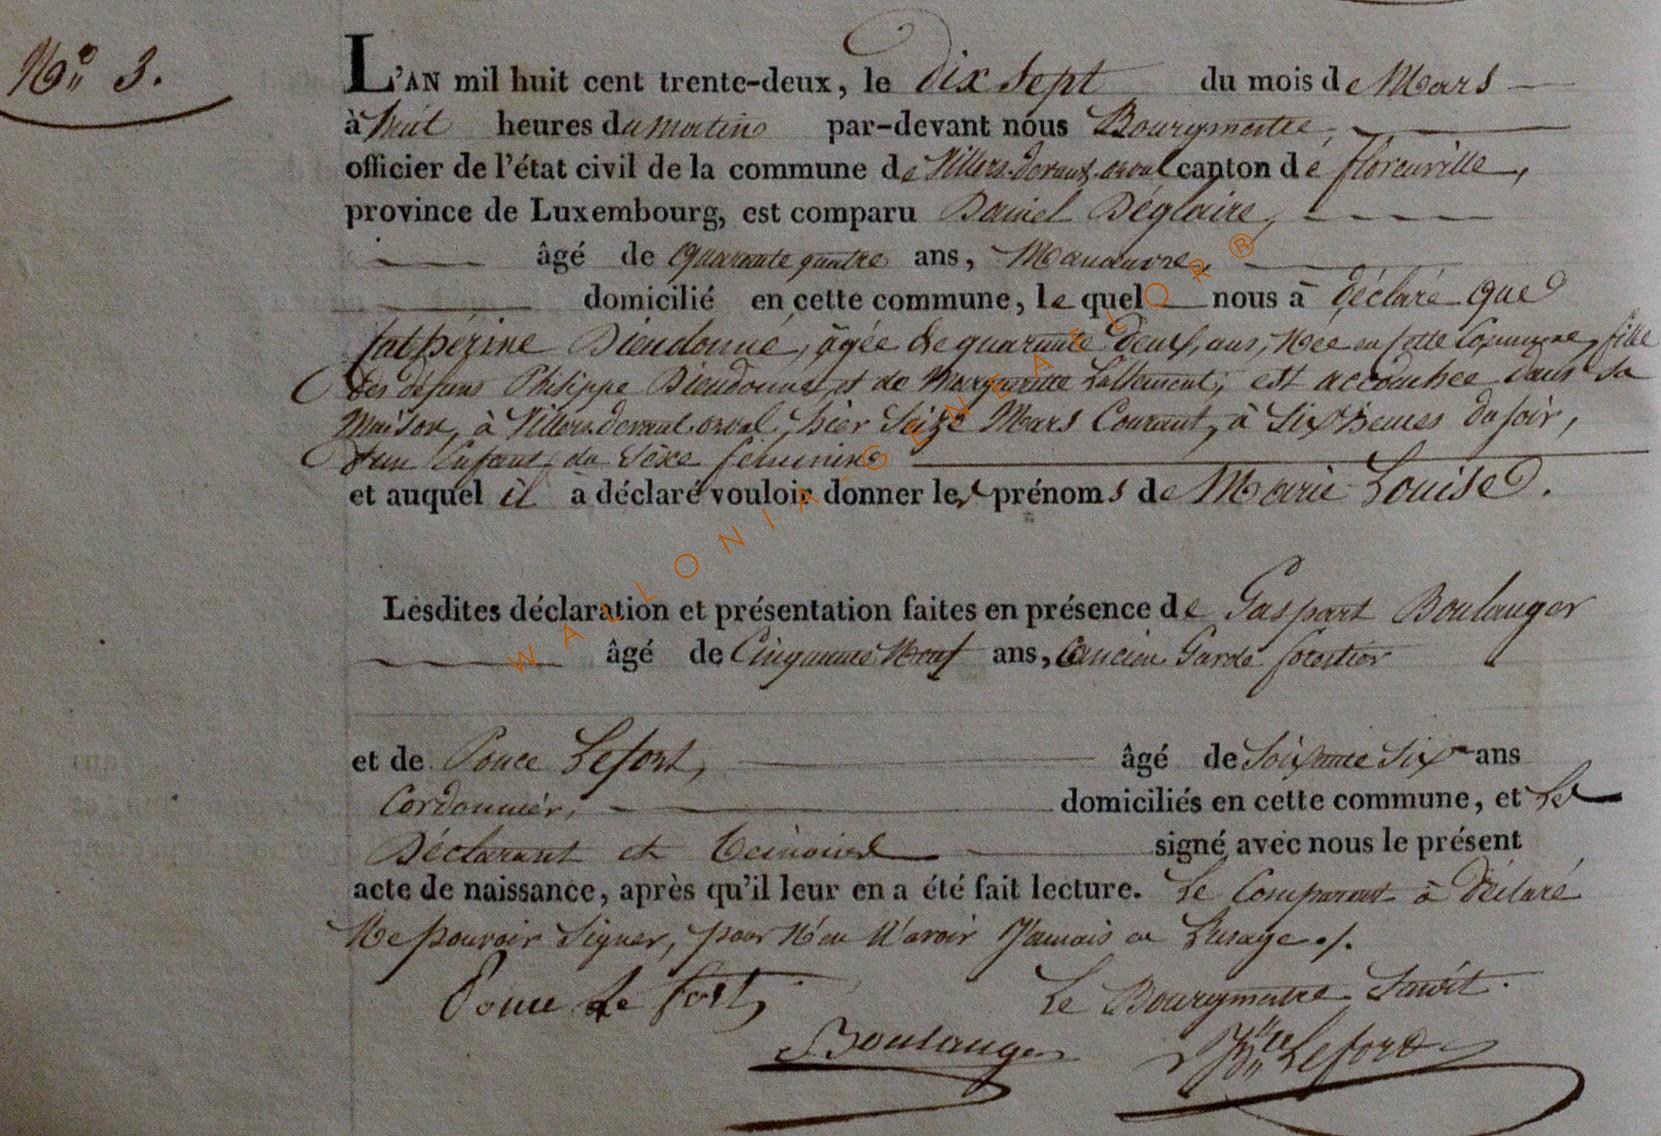 No 3.
L'AN mil huit cent trente-deux, le dix sept du mois de Mars
à huit heures du matin par-devant nous Bourgmestre,
officier de l'état civil de la commune de Villers-devant-orval canton dé florenville,
province de Luxembourg, est comparu Daniel Déglaire,
âgé de quarante quatre ans, Manœuvre,
domicilié en cette commune, le quel nous à déclaré que
Cathérine Dieudonné, âgée de quarante deux, ans, Née en Cette Commune, fille
des défuns Philippe Dieudonné, et de Marguerite Lallement; est accouchée dans sa
Maison, à Villers devant orval, hier Seize Mars Courant, à Six heures du soir,
d'un Enfant du Séxe féminin
et auquel il à déclaré vouloir donner les prénoms de Marie Louise.
Lesdites déclaration et présentation faites en présence de Gaspart Boulanger
âgé de Cinquante Neuf ans, ancien Garde forestier
et de Ponce Lefort, âgé de Soixante Six ans
Cordonnier, domiciliés en cette commune, et Les
Déclarant et temoins signé avec nous le présent
acte de naissance, après qu'il leur en a été fait lecture. Le Comparant à déclaré
Ne pouvoir Signer, pour N'en N'avoir Jamais eu L'usage ./.
Ponce Le fort, Le Bourgmestre Susdit.
Boulanger Lefort
WALLONIA-GENEALOR®